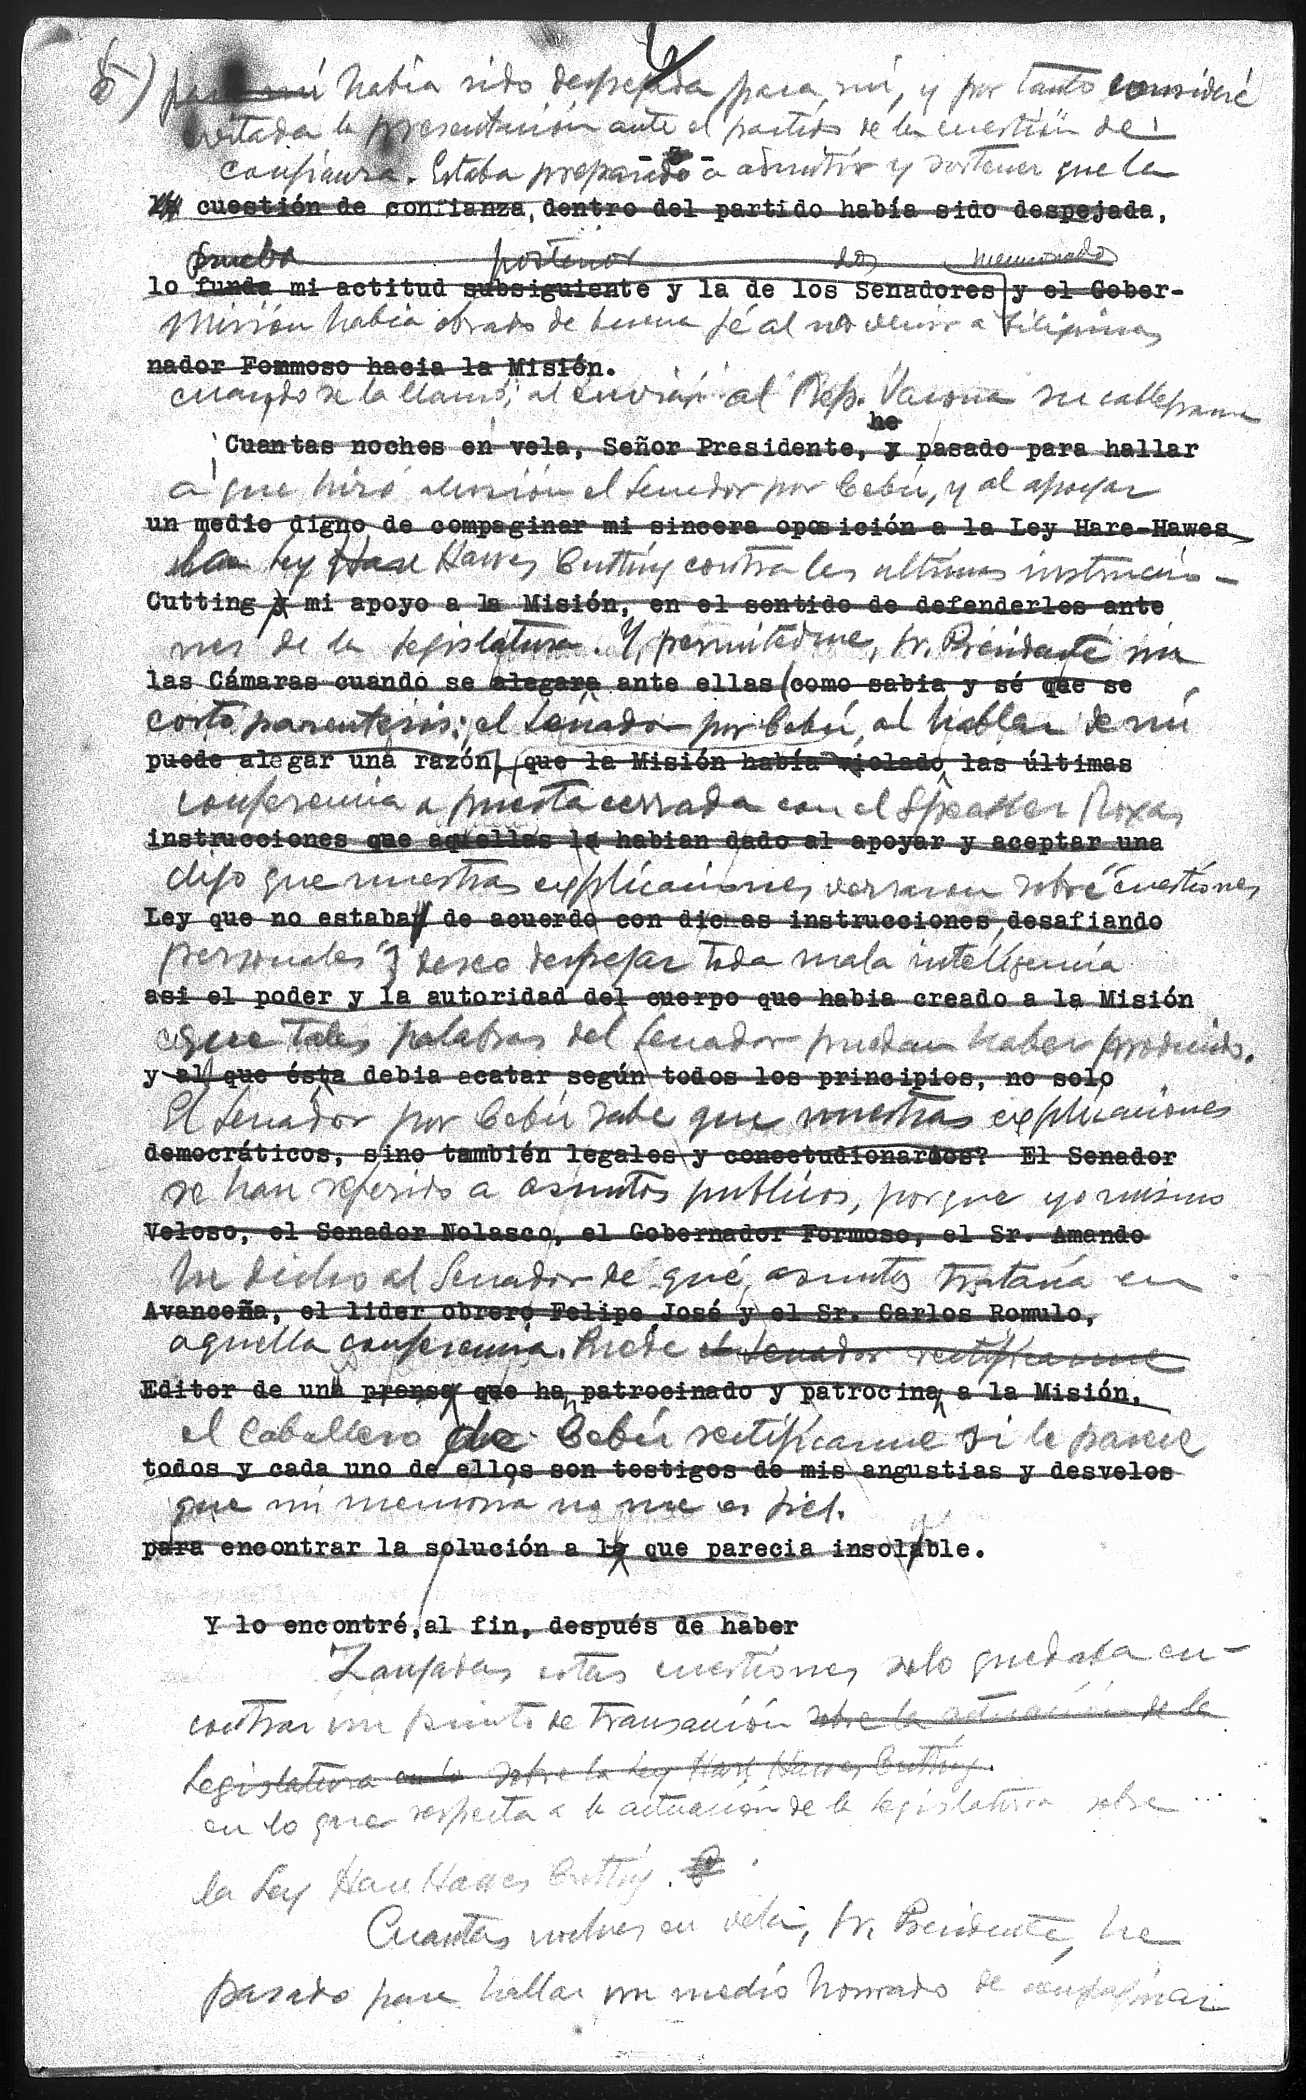 6
5) para mí había sido despejada para mí, y por tanto consideré
evitada la presentación ante el partido de la cuestión de
confianza. Estaba preparado a admitir y sostener que la
cuestión de confianza, dentro del partido había sido despejada,
prueba posterior los mencionados
lo funda mi actitud subsiguiente y la de los Senadores y el Gober-
Misión había obrado de buena fé al no venir a Filipinas
nador Fommoso hacia la Misión.
cuando se la llamó; al enviar al Rep. su cablegrama
he
Cuantas noches en vela, Señor Presidente, y pasado para hallar
a que hizo alusión el Senador por Cebú, y al apoyar
un medio digno de compaginar mi sincera oposición a la Ley Hare-Hawes
la Ley Hare Hawes Cutting contra las ultimas instruccio-
Cutting y mi apoyo a la Misión, en el sentido de defenderlos ante
nes de la Legislatura. Y, permitidme, Sr. Presidente un
las Cámaras cuando se alegara ante ellas (como sabia y sé que se
corto parentesis: el Senador por Cebú, al hablar de mi
puede alegar una razón, (que la Misión había violado las últimas
conferencia a puerta cerrada con el Speaker Roxas,
instrucciones que aquellas la habian dado al apoyar y aceptar una
dijo que nuestras explicaciones versaron sobre "cuestiones
Ley que no estaba de acuerdo con dichas instrucciones, desafiando
personales" y deseo despejar toda mala inteligencia
asi el poder y la autoridad del cuerpo que habia creado a la Misión
que tales palabras del Senador puedan haber producido.
y al que ésta debia acatar según todos los principios, no solo
El Senador por Cebú sabe que nuestras explicaciones
democráticos, sino también legales y consetudionarios? El Senador
se han referido a asuntos publicos, porque yo mismo
Veloso, el Senador Nolasco, el Gobernador Formoso, el Sr. Amando
he dicho al Senador de qué asuntos trataría en
Avanceña, el lider obrero Felipe José y el Sr. Carlos Romulo,
aquella conferencia. Puede el Senador rectificarme
Editor de una prensa que ha patrocinado y patrocina a la Misión,
el Caballero de Cebú rectificarme si le parece
todos y cada uno de ellos son testigos de mis angustias y desvelos
que mi memoria no me es fiel.
para encontrar la solución a lo que parecia insoluble.
Y lo encontré, al fin, después de haber
Zanjadas estas cuestiones solo quedaba en-
contrar un punto de transacción sobre la actuación de la
Legislatura en lo sobre la Ley Hare Hawes Cutting.
en lo que respecta a la actuación de la Legislatura sobre
la Ley Hare Hawes Cutting.
Cuantas noches en vela, Sr. Presidente, he
pasado para hallar un medio honrado de compaginar